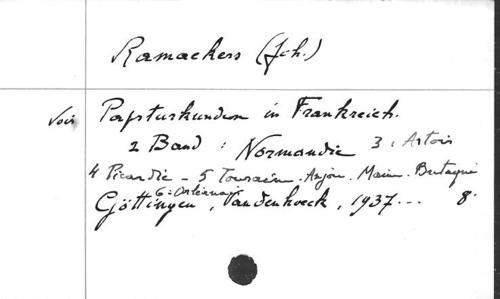 Ramackers (Joh.)
Voir Papsturkunden in Frankreich.
2 Band : Normandie 3 : Artois
4 Picardie - 5 Touraine. Anjou. Maine. Bretagne
6 : Orléanais
Göttingen, Vandenhoeck, 1937... 8°